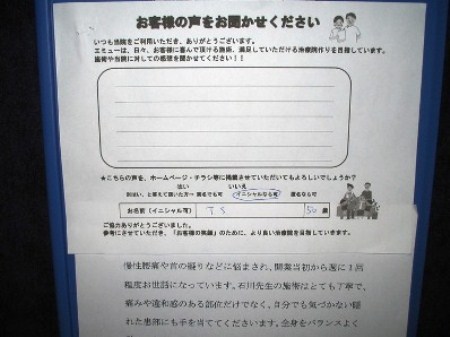 お客様の声をお聞かせください
いつも当院をご利用いただき、ありがとうございます。
エミューは、日々、お客様に喜んで頂ける施術、満足していただける治療院作りを目指しています。
施術や当院に対しての感想を聞かせてください！！
★こちらの声を、ホームページ・チラシ等に掲載させていただいてもよろしいでしょうか？
はい いいえ
※はい、と答えて頂いた方→ 実名でも可 イニシャルなら可 匿名なら可
お名前（イニシャル可） T S 50 歳
ご協力ありがとうございました。
参考にさせていただき、「お客様の笑顔」のために、より良い治療院を目指していきます。
慢性腰痛や首の凝りなどに悩まされ、開業当初から週に１回
程度お世話になっています。石川先生の施術はとても丁寧で、
痛みや違和感のある部位だけでなく、自分でも気づかない隠
れた患部にも手を当ててくださいます。全身をバランスよく